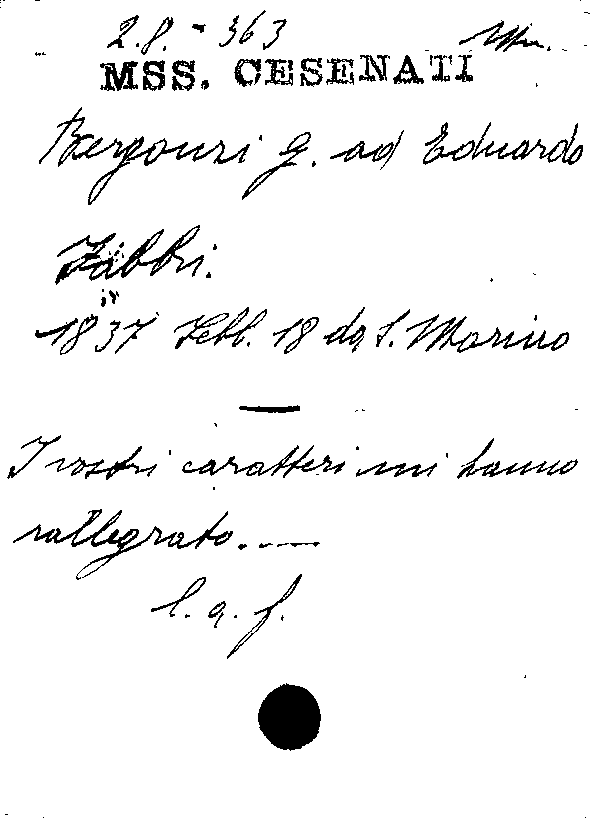 2.8. - 363
MSS. CESENATI
Bergonzi G. ad Eduardo
Fabbri.
1837 Febb. 18 da S. Marino
I vostri caratteri mi hanno
rallegrato. . —
l. a. f.